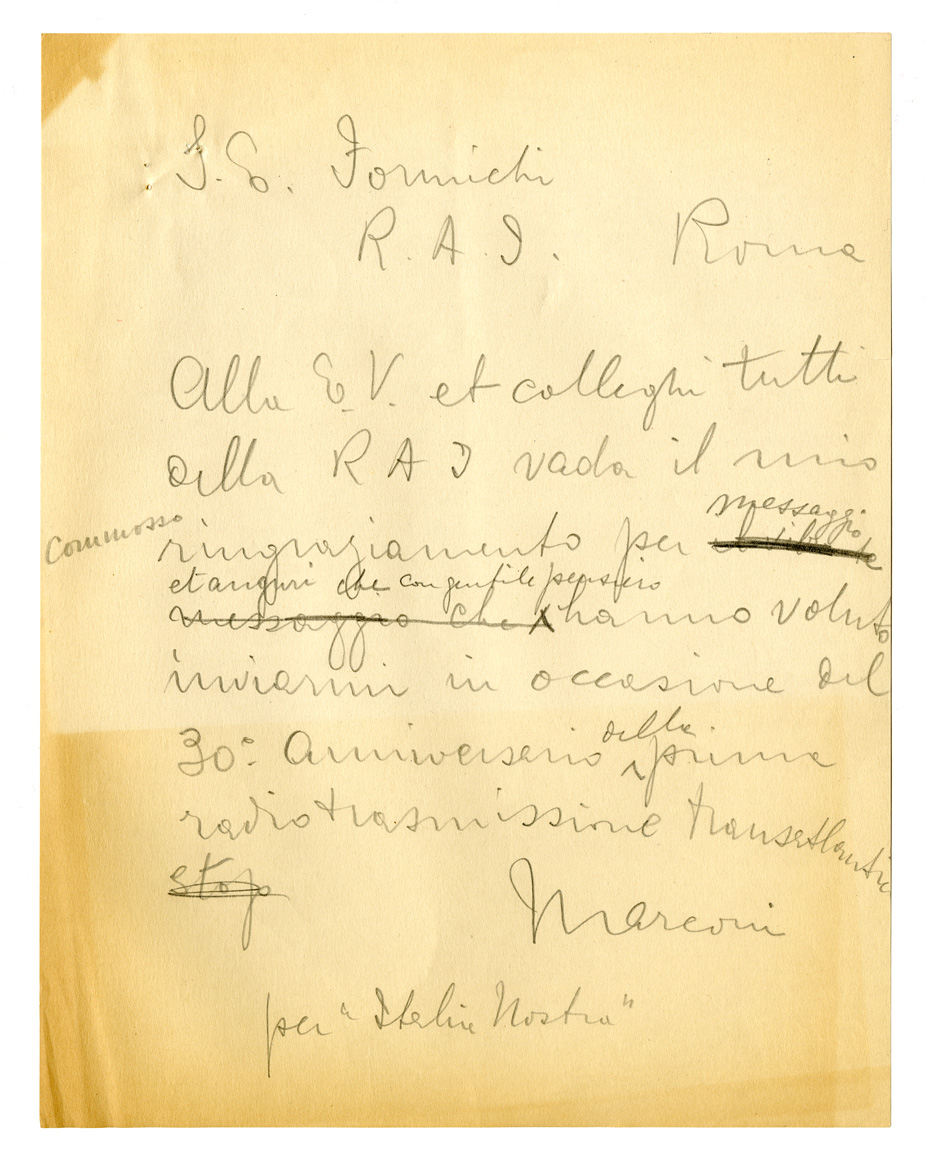 S. E. Formichi
R. A. I. Roma
Alla E. V. et colleghi tutti
della R A I vada il mio
messaggio
commosso ringraziamento per
et auguri che con gentile pensiero
messaggio che hanno voluto
inviarmi in occasione del
della
30° Anniversario prima
radiotrasmissione transatlantica
stop
Marconi
per "Italia Nostra"